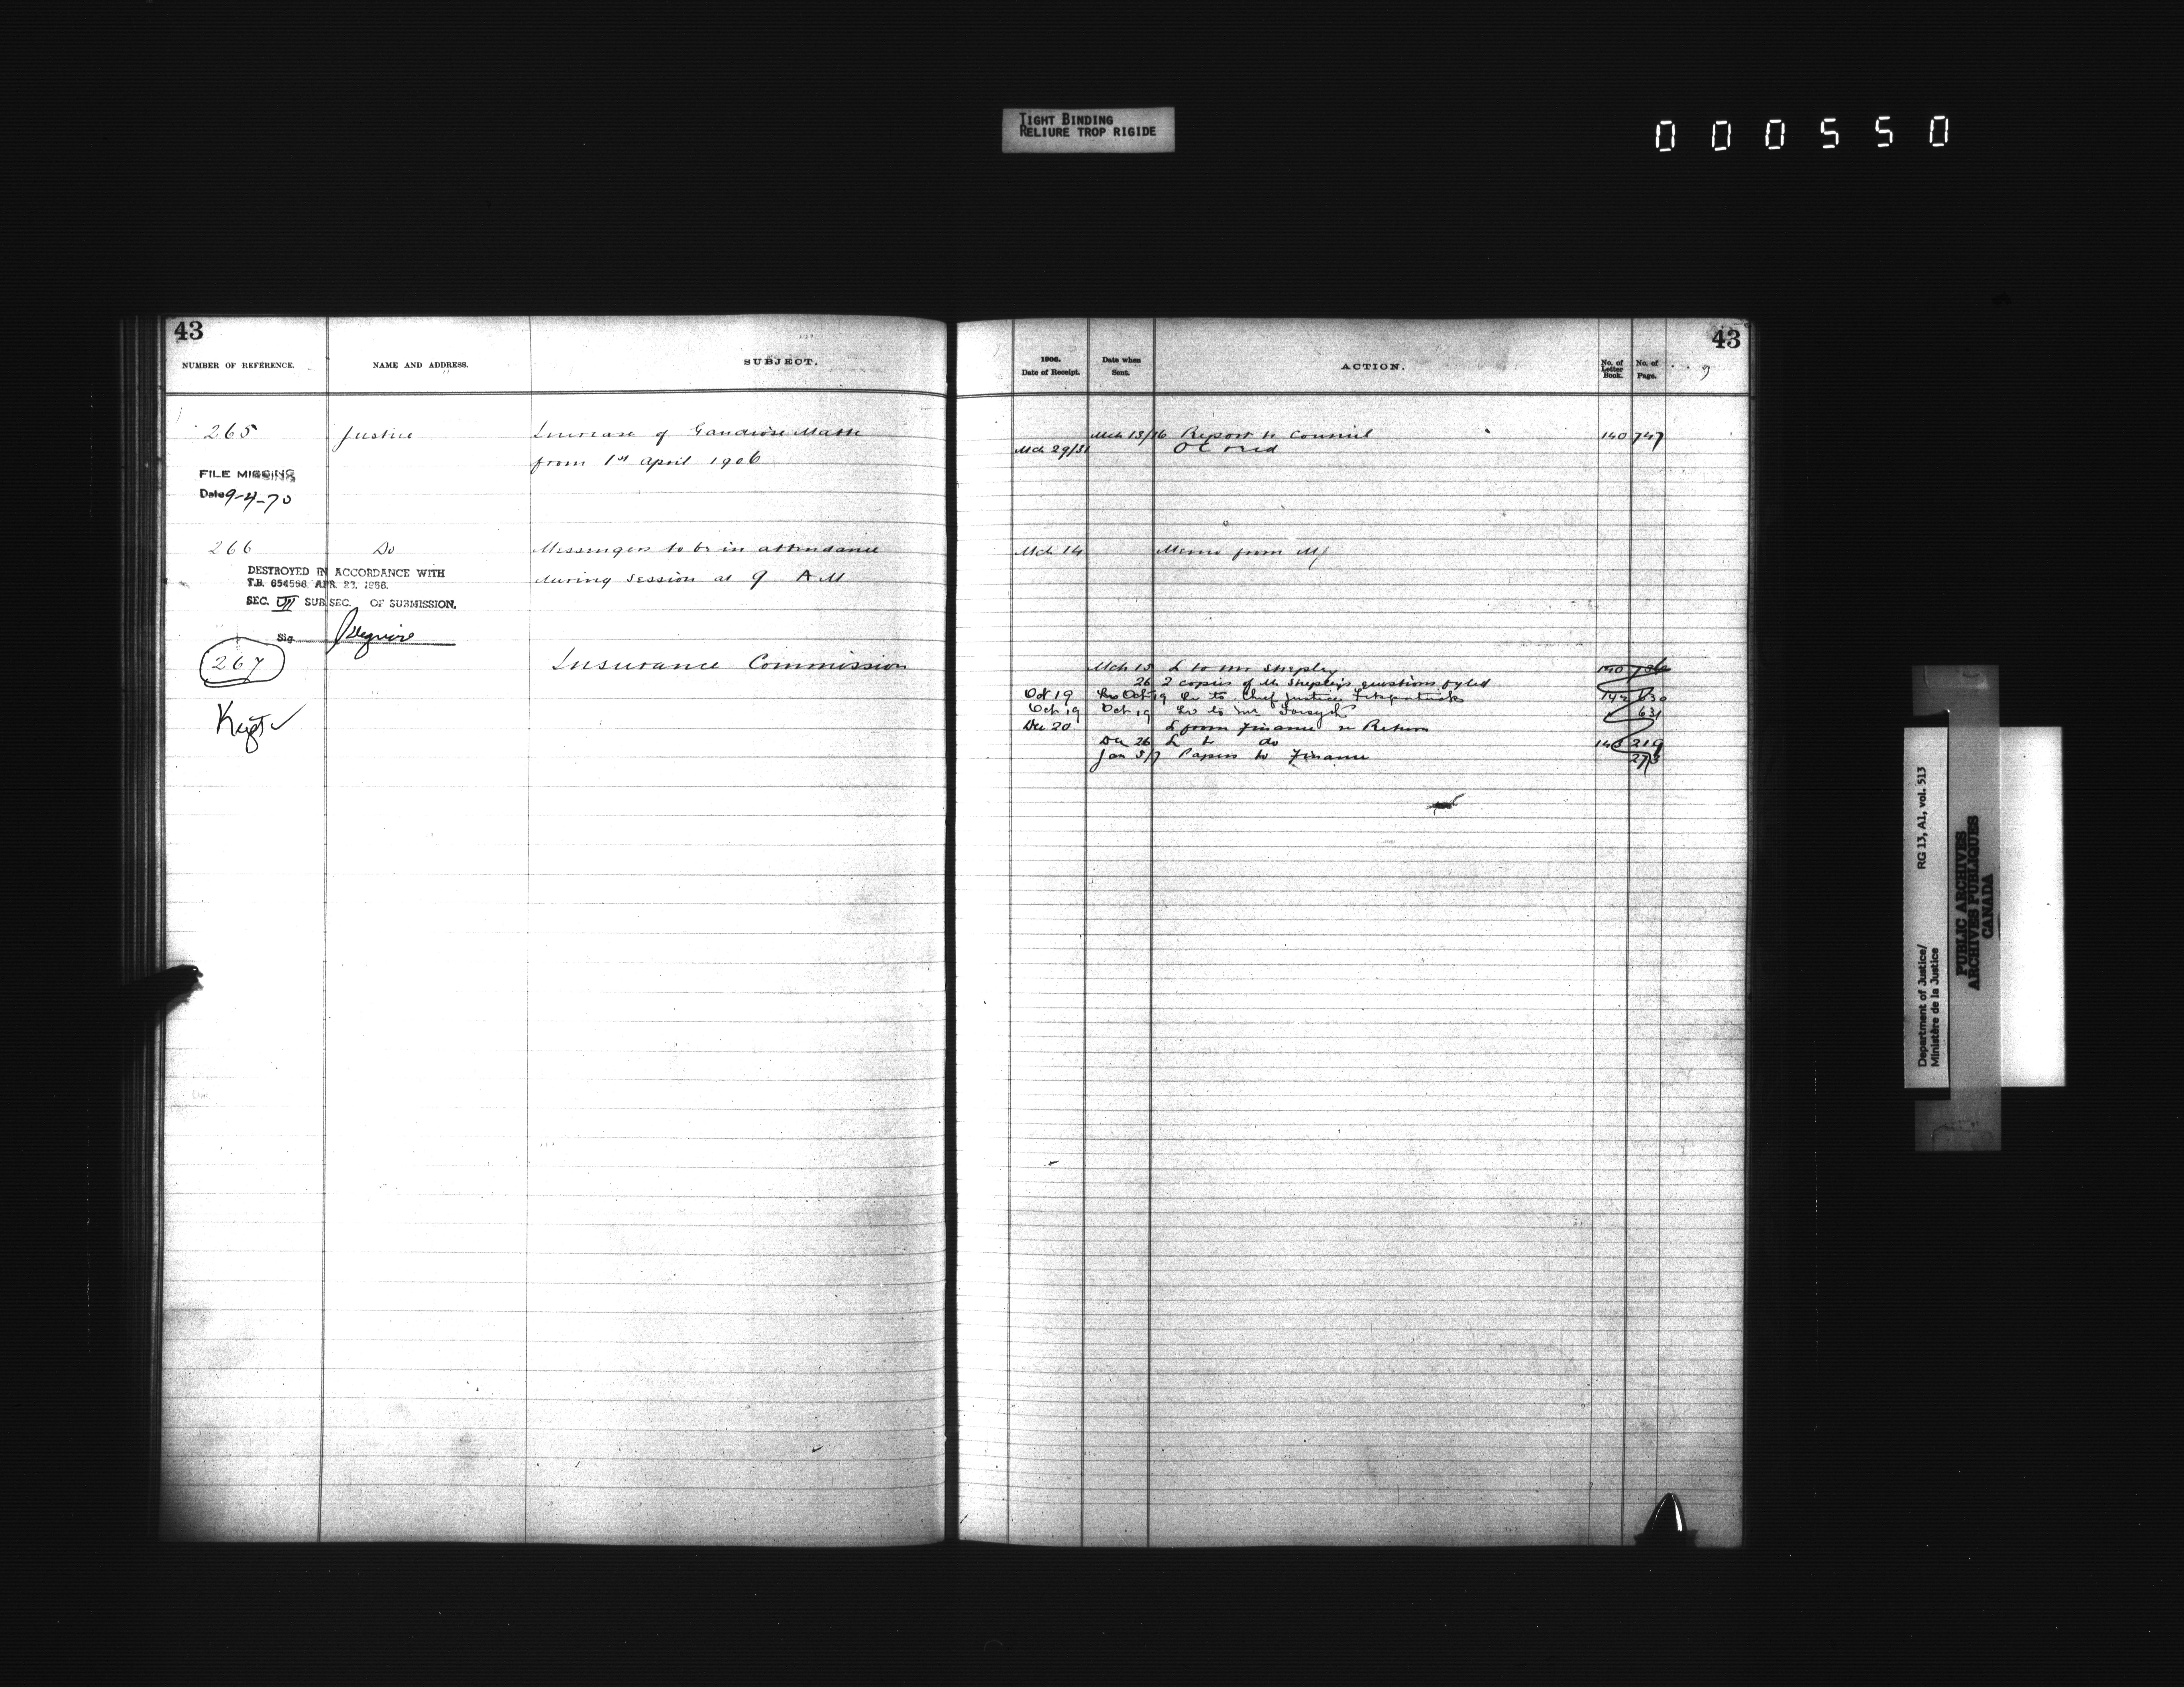 TIGHT BINDING
RELIURE TROP RIGIDE
000550
43
NUMBER OF REFERENCE. NAME AND ADDRESS. SUBJECT.
265 Justice Increase of
from 1st April 1906
FILE MISSING
Date 9-4-70
266 Do Messengers to be in attendance
during session at 9 AM
DESTROYED IN ACCORDANCE WITH
T.B. 654556 APR. 27, 1966.
SEC. VII SUB SEC. OF SUBMISSION.
Sig.
267 Insurance Commission
Kept
43
1906.
Date of Receipt. Date when Sent. ACTION. No. of Letter Book. No. of Page.
Mch 13/16 Report to Council 140 747
Mch 29/31 OC recd
Mch 14 Memo from MJ
Mch 15 L to Mr Shepley 140
26 2 copies of Mr Shepley's questions fyled
Oct 19 Oct 19 Lr to Chief Justice Fitzpatrick 142 630
Oct 19 Oct 19 Lr to Mr Forsyth 631
Dec 20 L from Finance re Return
Dec 26 L to do 143 219
Jan 5/7 Papers to Finance 273
Department of Justice/ RG 13, A1, vol. 513
Ministère de la Justice
PUBLIC ARCHIVES
ARCHIVES PUBLIQUES
CANADA